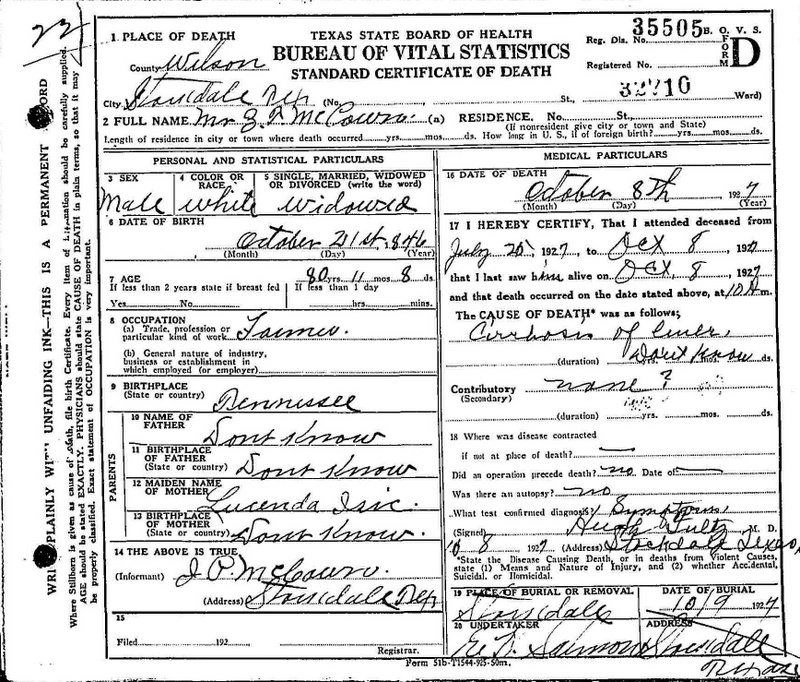 22
1 PLACE OF DEATH
TEXAS STATE BOARD OF HEALTH
BUREAU OF VITAL STATISTICS
STANDARD CERTIFICATE OF DEATH
35505 B. O. V. S.
Reg. Dis. No.
FORM D
Registered No.
32710
County Wilson
City Stocdale Tex (No. St., Ward)
2 FULL NAME Mr McCown (a) RESIDENCE. No. St.
(If nonresident give city or town and State)
Length of residence in city or town where death occurred yrs. mos. ds. How long in U. S., if of foreign birth? yrs. mos. ds.
WRITE PLAINLY WITH UNFAIDING INK—THIS IS A PERMANENT RECORD
Where Stillborn is given as cause of death, file birth Certificate. Every item of information should be carefully supplied.
AGE should be stated EXACTLY. PHYSICIANS should state CAUSE OF DEATH in plain terms, so that it may
be properly classified. Exact statement of OCCUPATION is very important.
PERSONAL AND STATISTICAL PARTICULARS
3 SEX
Male
4 COLOR OR RACE
white
5 SINGLE, MARRIED, WIDOWED OR DIVORCED (write the word)
Widowed
6 DATE OF BIRTH
October 21st 1846
(Month) (Day) (Year)
7 AGE
80 yrs. 11 mos. 8 ds.
If less than 2 years state if breast fed
If less than 1 day
Yes No hrs. mins.
8 OCCUPATION
(a) Trade, profession or
particular kind of work Farmer.
(b) General nature of industry,
business or establishment in
which employed (or employer)
9 BIRTHPLACE
(State or country) Tennissee
PARENTS
10 NAME OF FATHER
Dont Know
11 BIRTHPLACE OF FATHER
(State or country) Dont Know
12 MAIDEN NAME OF MOTHER
Lucenda
13 BIRTHPLACE OF MOTHER
(State or country) Dont Know.
14 THE ABOVE IS TRUE.
(Informant) J. P. McCown.
(Address) Stocdale Tex
15
Filed 192
Registrar.
MEDICAL PARTICULARS
16 DATE OF DEATH
October 8th 1927
(Month) (Day) (Year)
17 I HEREBY CERTIFY, That I attended deceased from
July 20 1927, to Oct 8 1927
that I last saw him alive on Oct. 8 1927
and that death occurred on the date stated above, at 10 A m.
The CAUSE OF DEATH* was as follows;
Cirrhosis of liver,
(duration) Dont Know ds.
Contributory none?
(Secondary)
(duration) yrs. mos. ds.
18 Where was disease contracted
if not at place of death?
Did an operation precede death? no Date of
Was there an autopsy? no
What test confirmed diagnosis? Symptoms
(Signed) Hugh M. D.
10 8 1927 (Address) Stockdale Texas
*State the Disease Causing Death, or in deaths from Violent Causes,
state (1) Means and Nature of Injury, and (2) whether Accidental,
Suicidal, or Homicidal.
19 PLACE OF BURIAL OR REMOVAL
Stocdale 10/9 1927
20 UNDERTAKER
ADDRESS
Stocdale
Texas
Form 51b-T1544-925-50m.